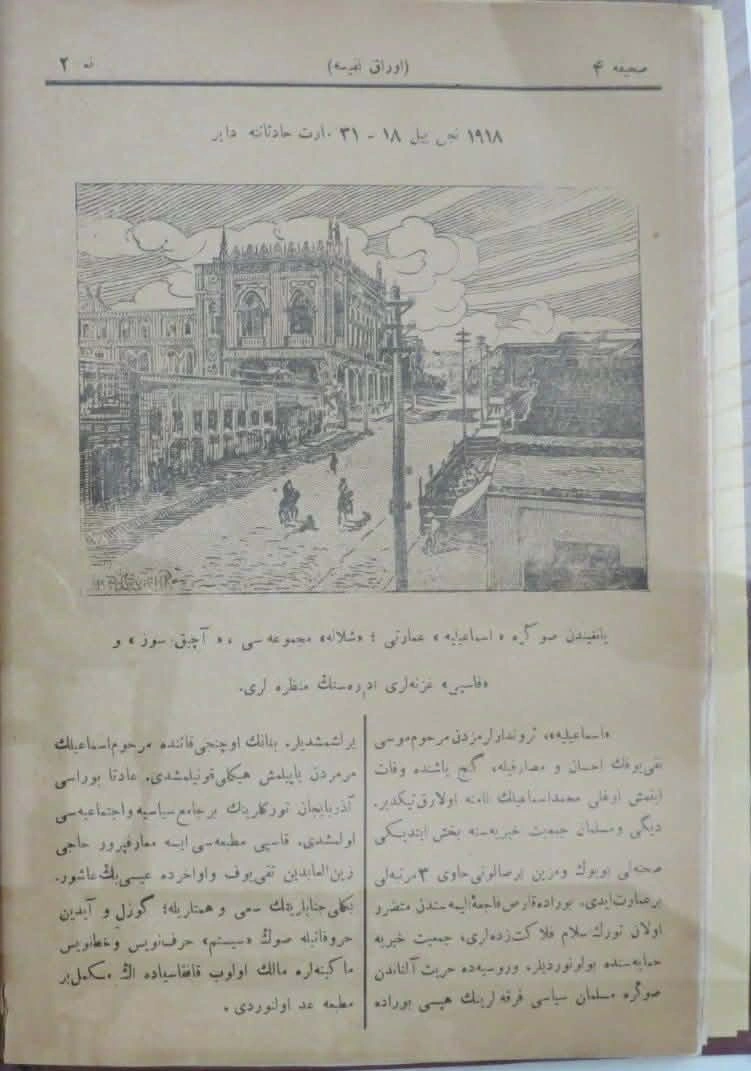 صحیفه ۴
(اوراق نفیسه)
نه ۲
۱۹۱۸ نجی ییل ۱۸ - ۳۱ مارت حادثاتنه دایر
یانغیندن صوکره «اسماعیلیه» عمارتی ؛ «شلاله» مجموعه سی ، «آچیق سوز» و
«قاسپی» غزته لری اداره سنك منظره لری.
«اسماعیلیه»، ثروتدارلرمزدن مرحوم موسی
نقی یوفك احسان و مصارفیله، گنج یاشنده وفات
ایتمش اوغلی محمد اسماعیلك نامنه اولارق تیکدیر.
دیگی و مسلمان جمعیت خیریه سنه بخش ایتدیکی
صحنه لی بویوك و مزین بر صالونی حاوی ۳ مرتبه لی
بر عمارت ایدی. بوراده قارص فاجعۀ الیمه سندن متضرر
اولان تورك سلام فلاکت زده لری، جمعیت خیریه
حمایه سنده بولونوردیلر. و روسیه ده حریت آلناندن
صوکره مسلمان سیاسی فرقه لرینك هپسی بوراده
یرلشمشدیلر. بنانك اوچنجی قاتنده مرحوم اسماعیلك
مرمردن یاپیلمش هیکلی قونیلمشدی. عادتا بوراسی
آذربایجان تورکلرینك بر جامع سیاسیه و اجتماعیه سی
اولمشدی. قاسپی مطبعه سی ایسه معارفپرور حاجی
زین العابدین تقی یوف و اواخرده عیسی بك عاشور.
بکلی جنابلرینك سعی و همتلریله؛ گوزل و آیدین
حروفاتیله صوك «سیستم» حرف نویس و خط نویس
ماکینه لره مالك اولوب قافقاسیاده اڭ مکمل بر
مطبعه عد اولنوردی .